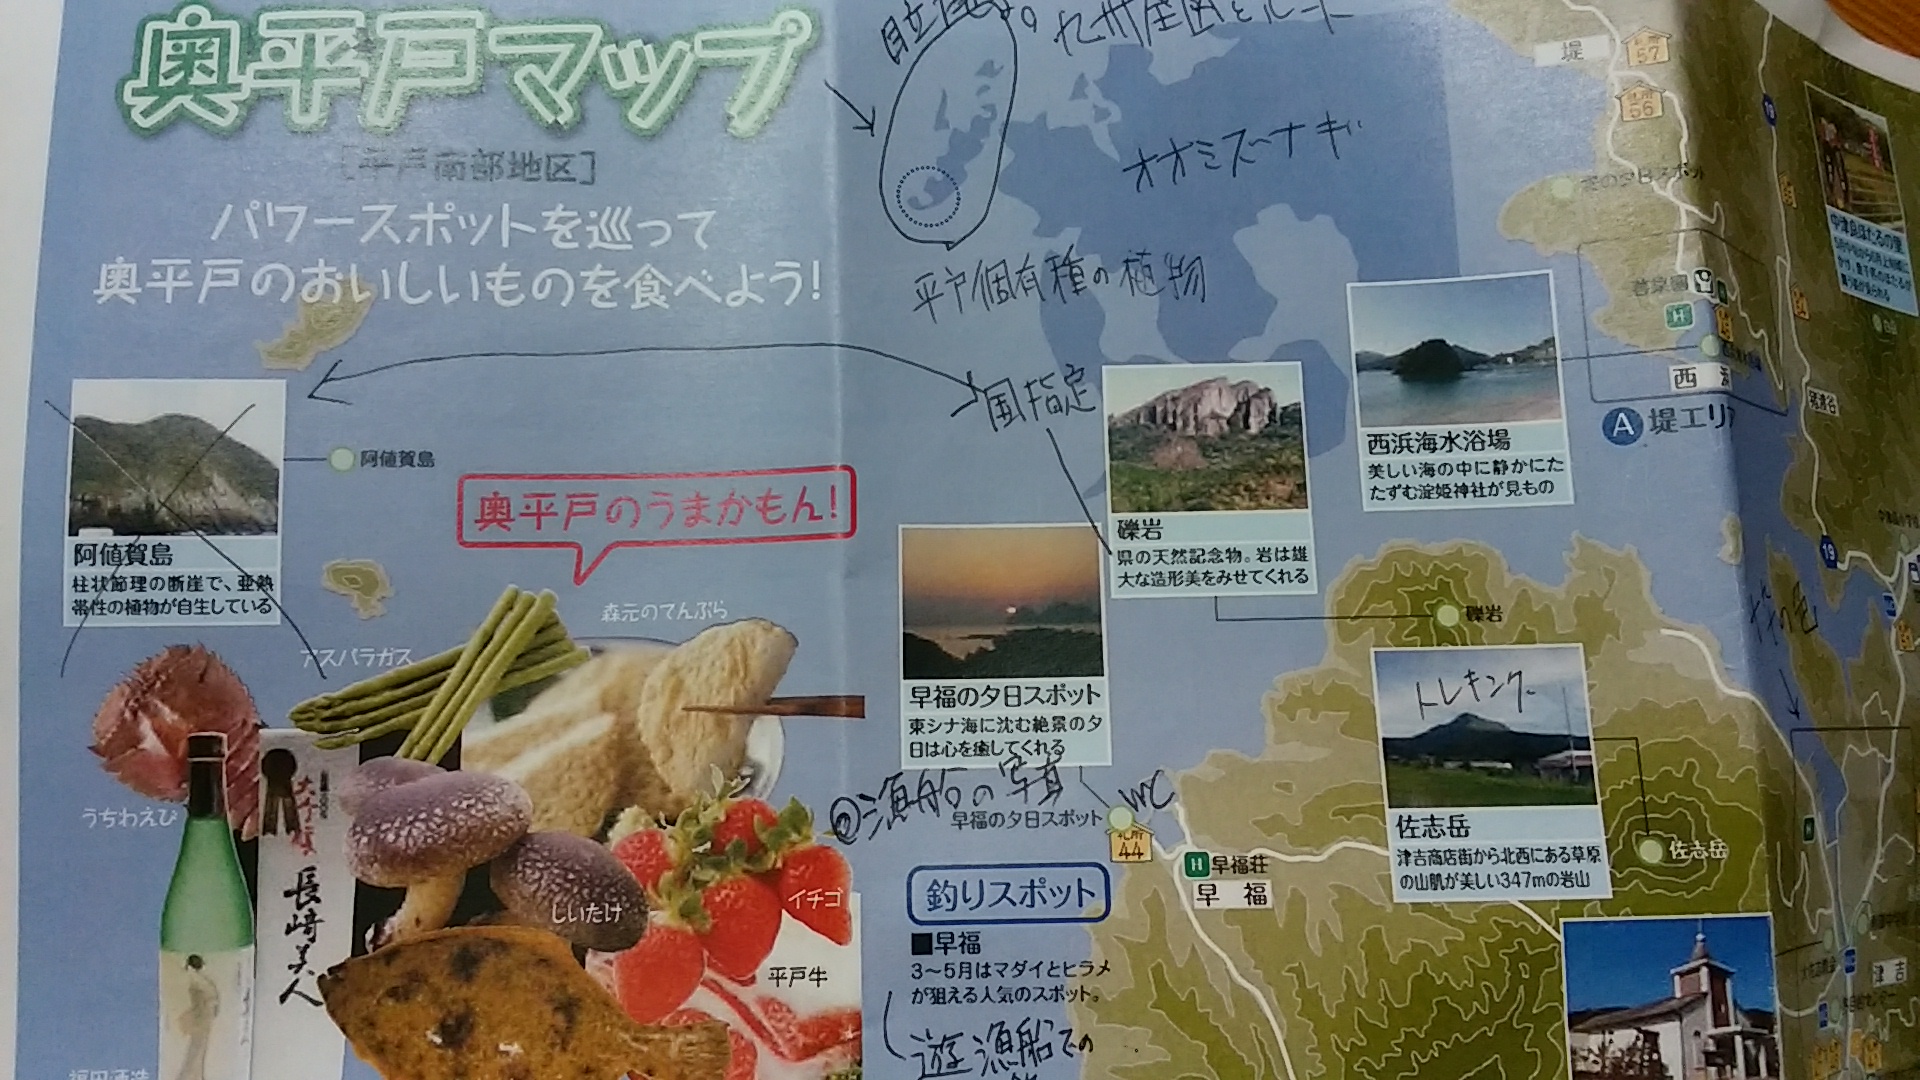 奥平戸マップ
[平戸南部地区]
パワースポットを巡って
奥平戸のおいしいものを食べよう!
阿値賀島
阿値賀島
柱状節理の断崖で、亜熱
帯性の植物が自生している
奥平戸のうまかもん!
森元のてんぷら
アスパラガス
うちわえび
長崎美人
しいたけ
イチゴ
平戸牛
福田酒造
オオミズナギ
平戸個有種の植物
国指定
礫岩
県の天然記念物。岩は雄
大な造形美をみせてくれる
礫岩
西浜海水浴場
美しい海の中に静かにた
たずむ淀姫神社が見もの
早福の夕日スポット
東シナ海に沈む絶景の夕
日は心を癒してくれる
漁船の写真
早福の夕日スポット
WC
札所
44
H 早福荘
早福
釣りスポット
■早福
3〜5月はマダイとヒラメ
が狙える人気のスポット。
遊漁船での
トレキング
佐志岳
津吉商店街から北西にある草原
の山肌が美しい347mの岩山
佐志岳
堤
札所
57
札所
56
H
A 堤エリア
中津良ほたるの里
19
19
津吉
H